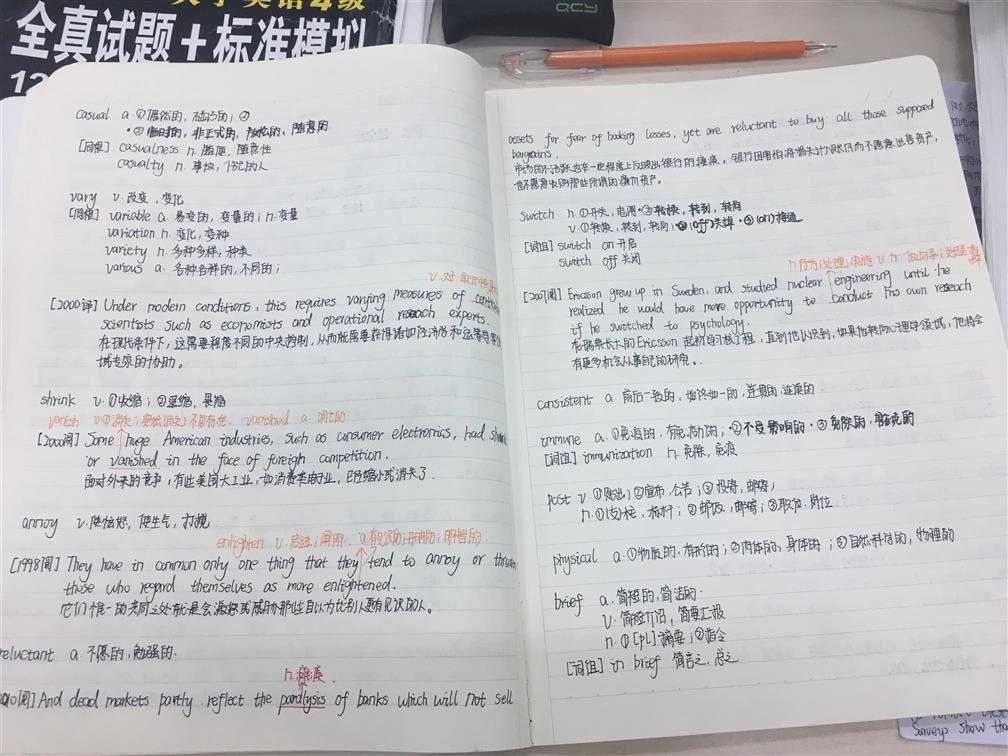 大学英语4级
全真试题+标准模拟
12
QCY
casual a. ①偶然的, 碰巧的; ②
·②临时的, 非正式的, 随意的
[同根] casualness n. 随意性
casualty n. 事故, 伤亡的人
vary v. 改变, 变化
[同根] variable a. 易变的, 变量的; n. 变量
variation n. 变化, 变种
variety n. 多种多样, 种类
various a. 各种各样的, 不同的;
[2000译] Under modern conditions, this requires varying measures of
scientists such as economists and operational reseach experts.
在现代条件下, 这需要程度不同的中央控制, 从而就需要获得诸如经济学和运筹学
域专家的协助。
shrink v. ①收缩; ②退缩, 畏缩
vanish v. ①消失; 不复存在, vanished a. 消亡的
[2000阅] Some huge American industries, such as consumer electronics, had
or vanished in the face of foreign competition.
面对外来的竞争, 有些美国大工业, 如消费类电子业, 已经缩小或消失了.
annoy v. 使恼怒, 使生气, 打搅
enlighten v. 启迪; 阐明.
[1998阅] They have in common only one thing that they tend to annoy or
those who regard themselves as more enlightened.
它们唯一的共同之处就是会激怒或威胁那些自认为比别人更有见识的人。
reluctant a. 不愿的, 勉强的.
n. 瘫痪.
阅] And dead markets partly reflect the paralysis of banks which will not sell
assets for fear of booking losses, yet are reluctant to buy all those supposed
bargains.
市场的不活跃也在一定程度上反映出银行的瘫痪, 银行因害怕将损失计入账内而不愿意出售资产,
也不愿意收购那些所谓的廉价资产。
switch n. ①开关, 电闸·②转换, 转到, 转向
v. ①转换, 转到, 转向; ②(off)关掉·③(on)接通
[词组] switch on 开启
switch off 关闭
[2007阅] Ericsson grew up in Sweden, and studied nuclear engineering until he
realized he would have more opportunity to conduct his own reseach
if he switched to psychology.
在瑞典长大的Ericsson起初学习核工程, 直到他认识到, 如果他转向心理学领域, 他将会
有更多机会从事自己的研究。
consistent a. 前后一致的, 始终如一的, 连贯的, 连续的
immune a. ①免疫的, 有抵抗力的; ②不受影响的·③免除的, 豁免的
[词组] immunization n. 免除, 免疫
post v. ①贴出; ②宣布, 公告; ③投寄, 邮寄;
n. ①(支)柱, 标杆; ②邮政, 邮寄; ③职位, 岗位
physical a. ①物质的, 有形的; ②肉体的, 身体的; ③自然科学的, 物理的
brief a. 简短的, 简洁的.
v. 简短介绍, 简要汇报
n. ①[pl]摘要; ②指令
[词组] in brief 简言之, 总之
Surveys show tha